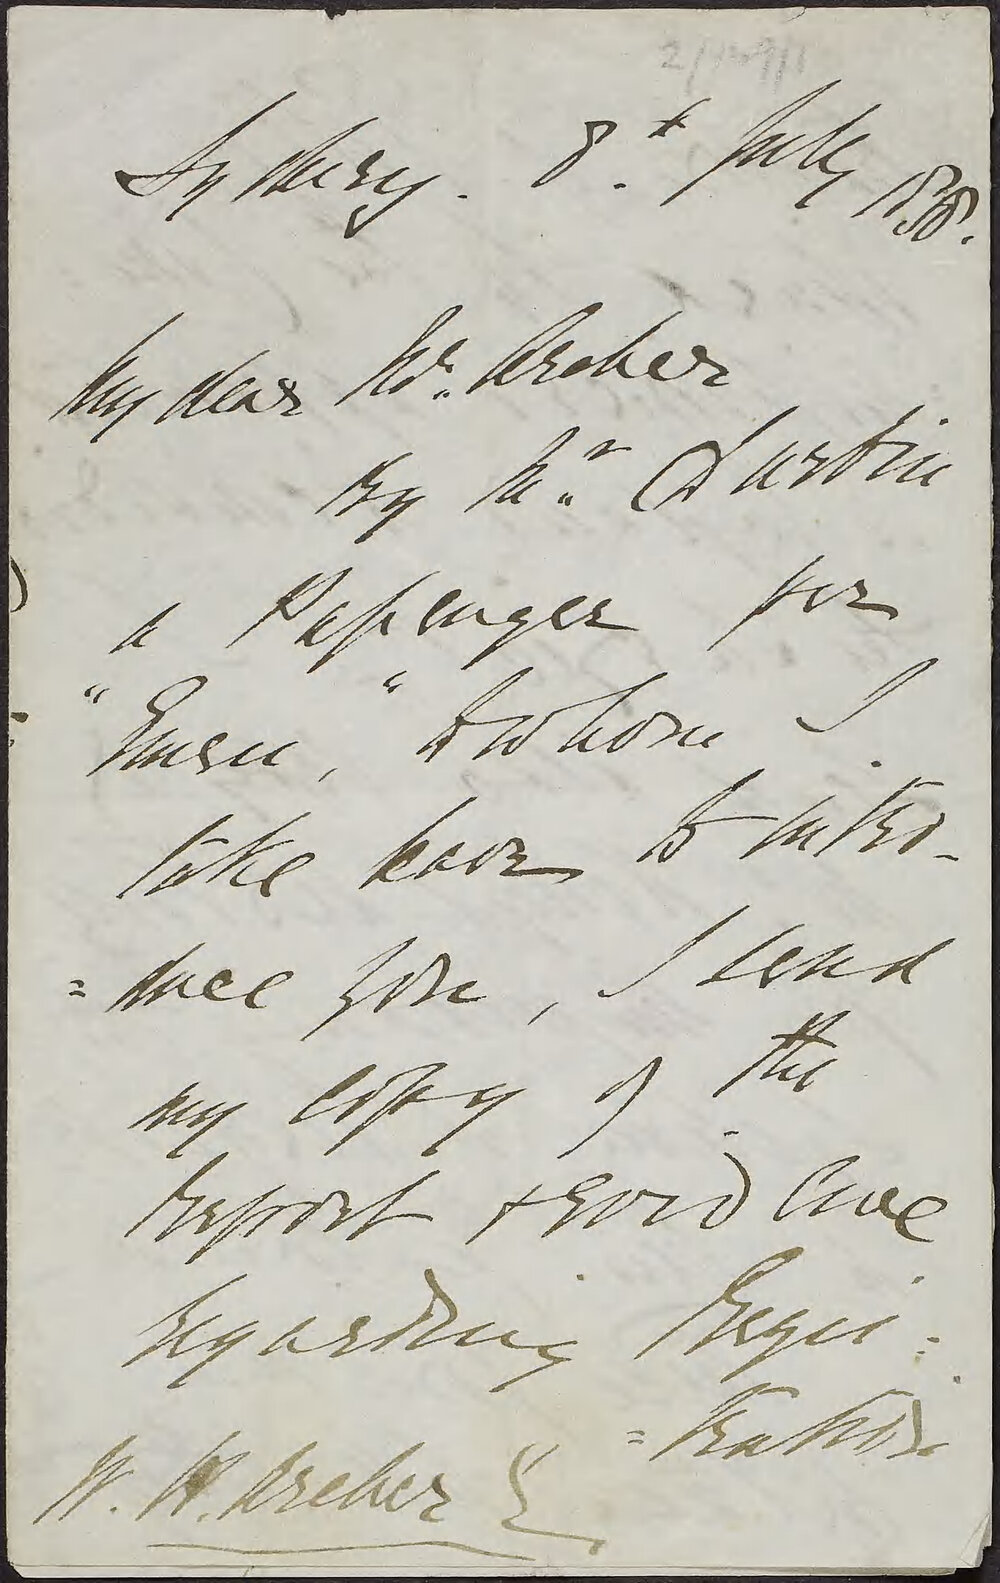 Sydney. 8.th July 1858.
My dear Mr. Archer
By Mr. Durbin
a Passenger per
"Emeu," to whom I
take leave to intro-
=duce you, I send
my copy of the
Report & Evidence
regarding Regis=
=tration
W. H. Archer E